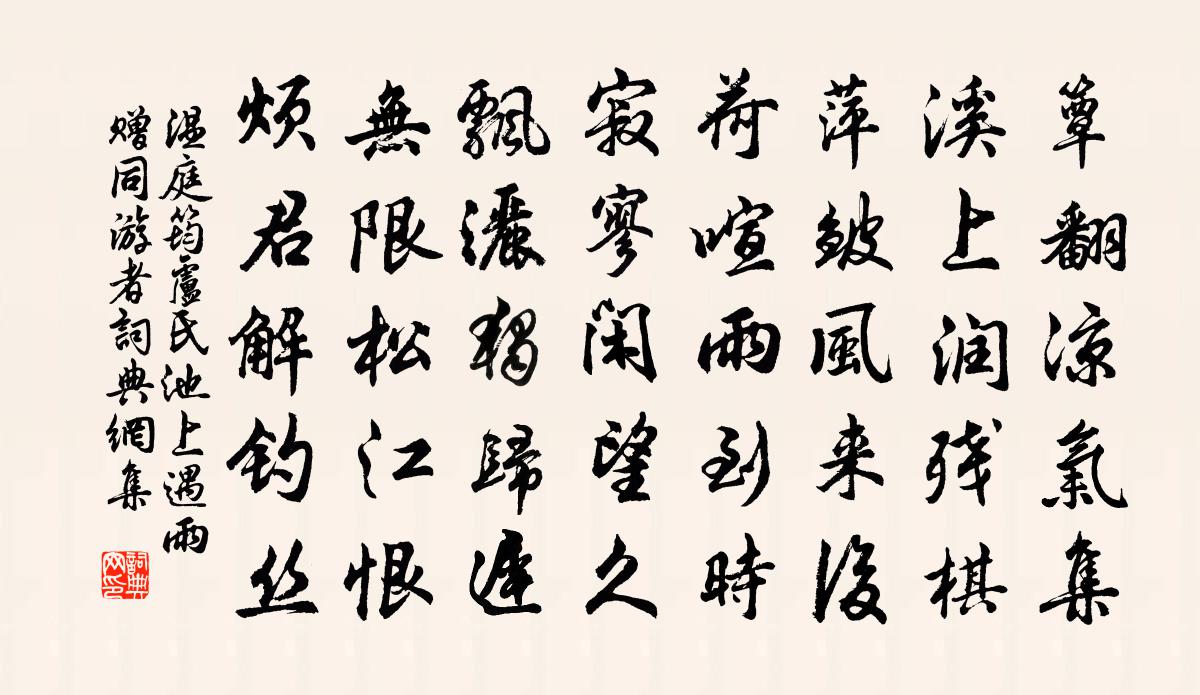 簟翻涼氣集
溪上润残棋
萍皴風来後
荷喧雨到時
寂寥閑望久
飄灑獨歸遲
無限松江恨
煩君解釣丝
温庭筠盧氏池上遇雨
贈同游者詞典網集
詞典网印